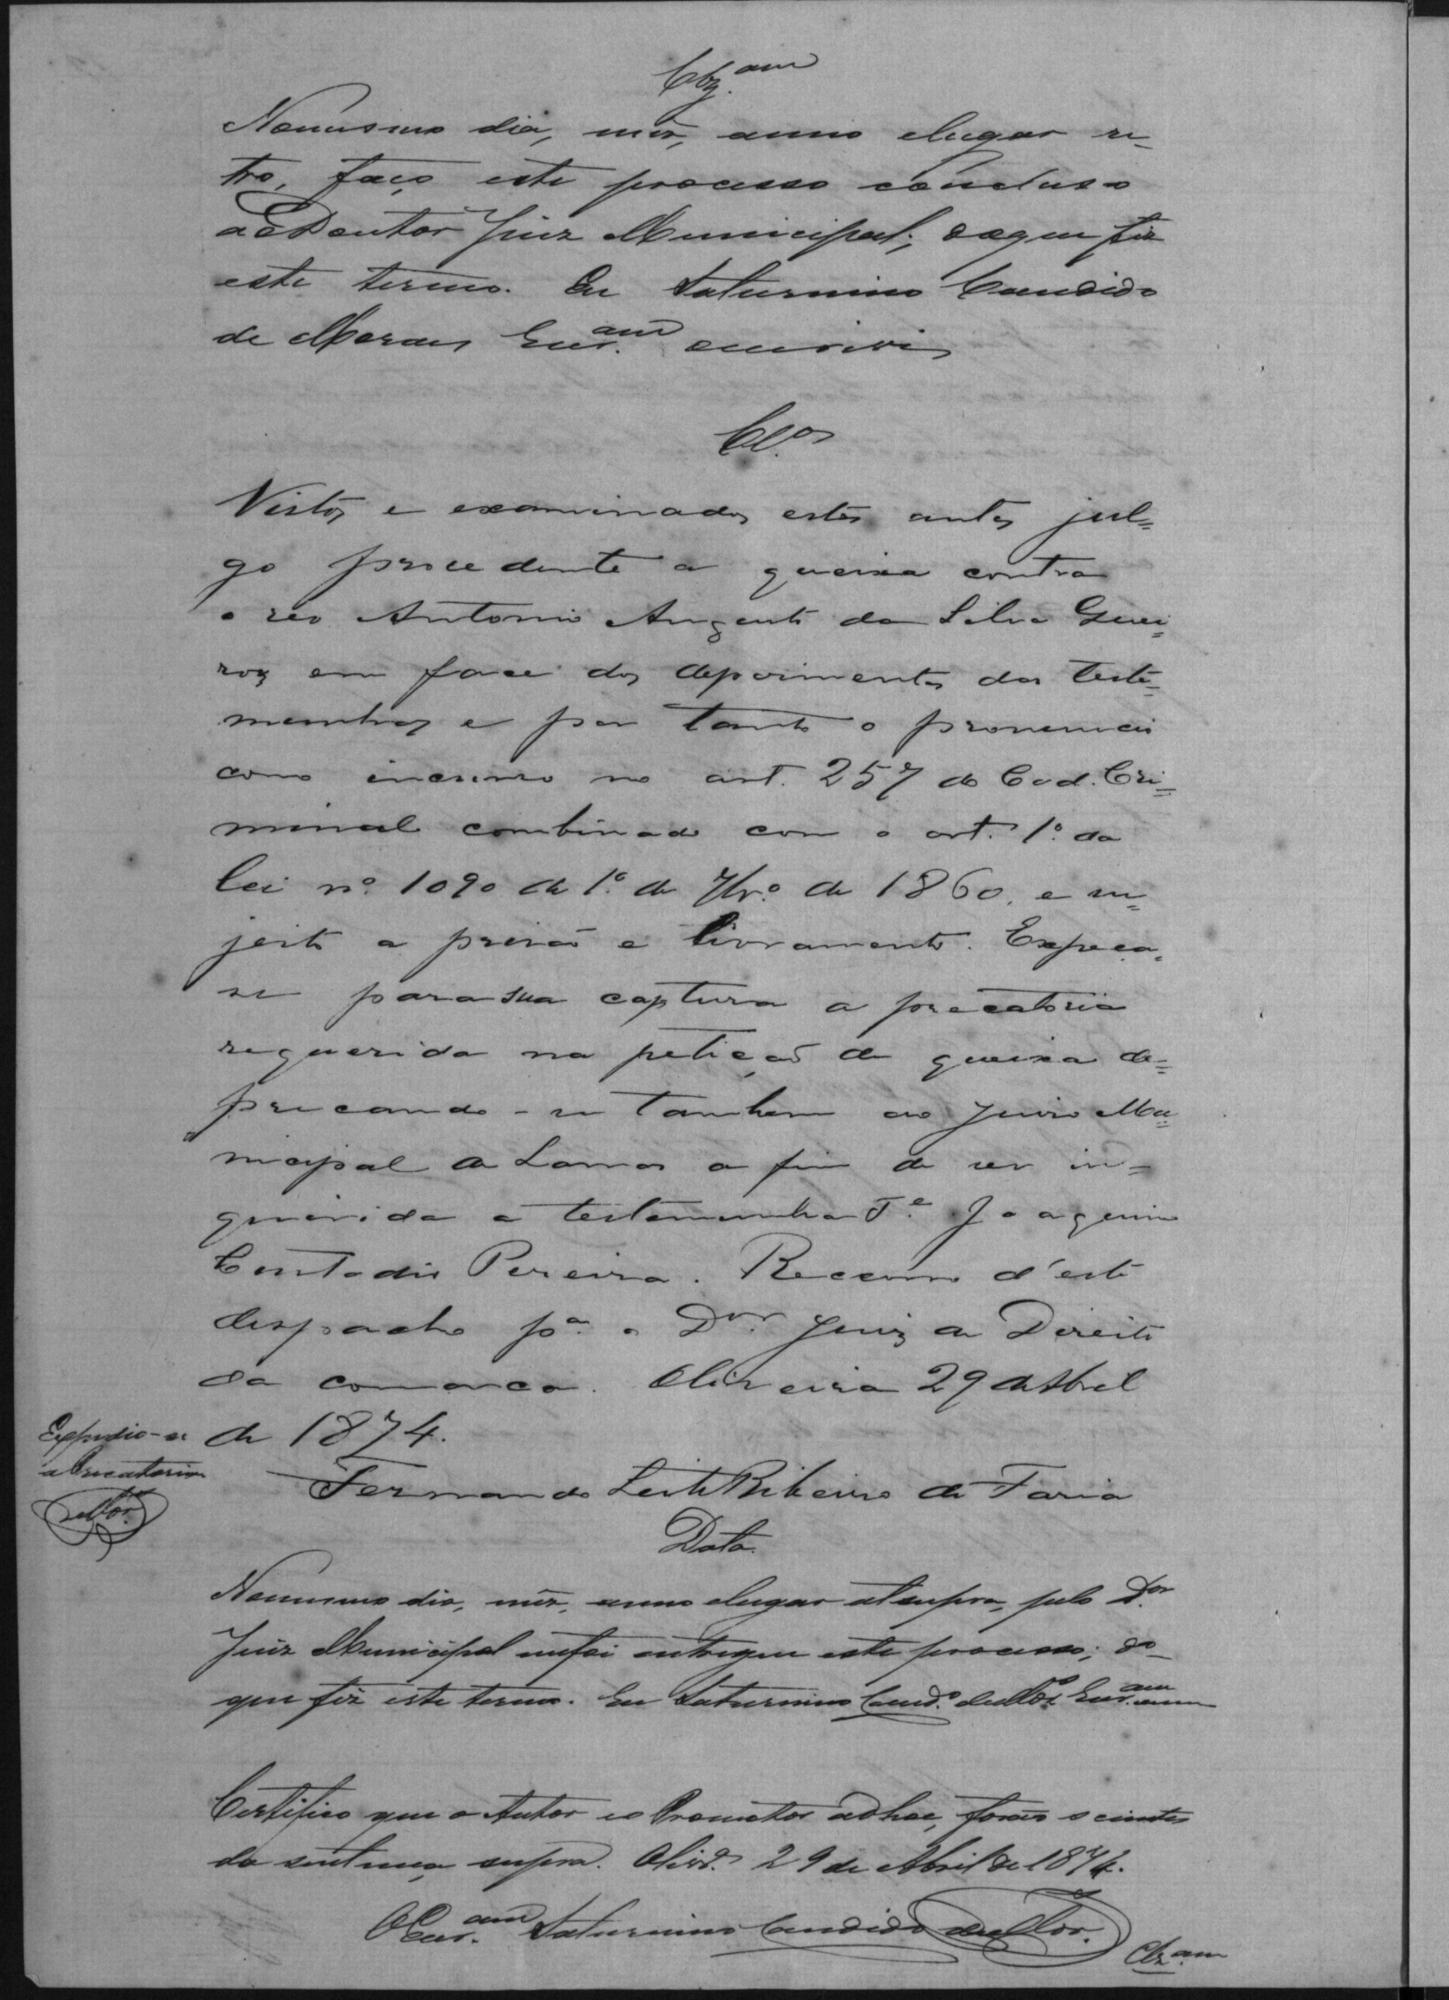 Clz.am
Nomesmo dia, mez, anno elugar re-
tro, faço este processo concluso
ao Doutor Juiz Municipal; doque fiz
este termo. Eu Saturnino Candido
de Moraes Escr.am escrivi
Cl.os
Vistos e examinados estes autos jul=
go procedente a queixa contra
o reo Antonio Augusto da Silva Quei=
roz em face dos depoimentos das teste=
munhas e por tanto o pronuncio
como incurso no art. 257 do Cod. Cri=
minal combinado com o art. 1.º da
lei nº 1090 de 1.º de 7br.º de 1860, e su=
jeito a prisão e livramento. Expeça=
se para sua captura a precatoria
requerida na petição de queixa de=
precando-se tambem ao Juizo Mu=
nicipal de Lavras a fim de ser in=
querida a testemunha T.e Joaquim
Custodio Pereira. Recorro d'este
despacho p.a o D.or Juiz de Direito
da comarca. Oliveira 29 de Abril
de 1874.
Expedio-se
a Precatoria
deMor.
Fernando Leite Ribeiro de Faria
Data.
Nomesmo dia, mez, anno elugar et supra, pelo D.or
Juiz Municipal mefoi entregue este processo; do-
que fiz este termo. Eu Saturnino Cand.º deMor. Escr.am
Certifico que o Autor eo Promotor adhoc, forão scientes
da sentença supra. Olivr.a 29 de Abril de 1874.
O Escr.am Saturnino Candido deMor.
Clz.am